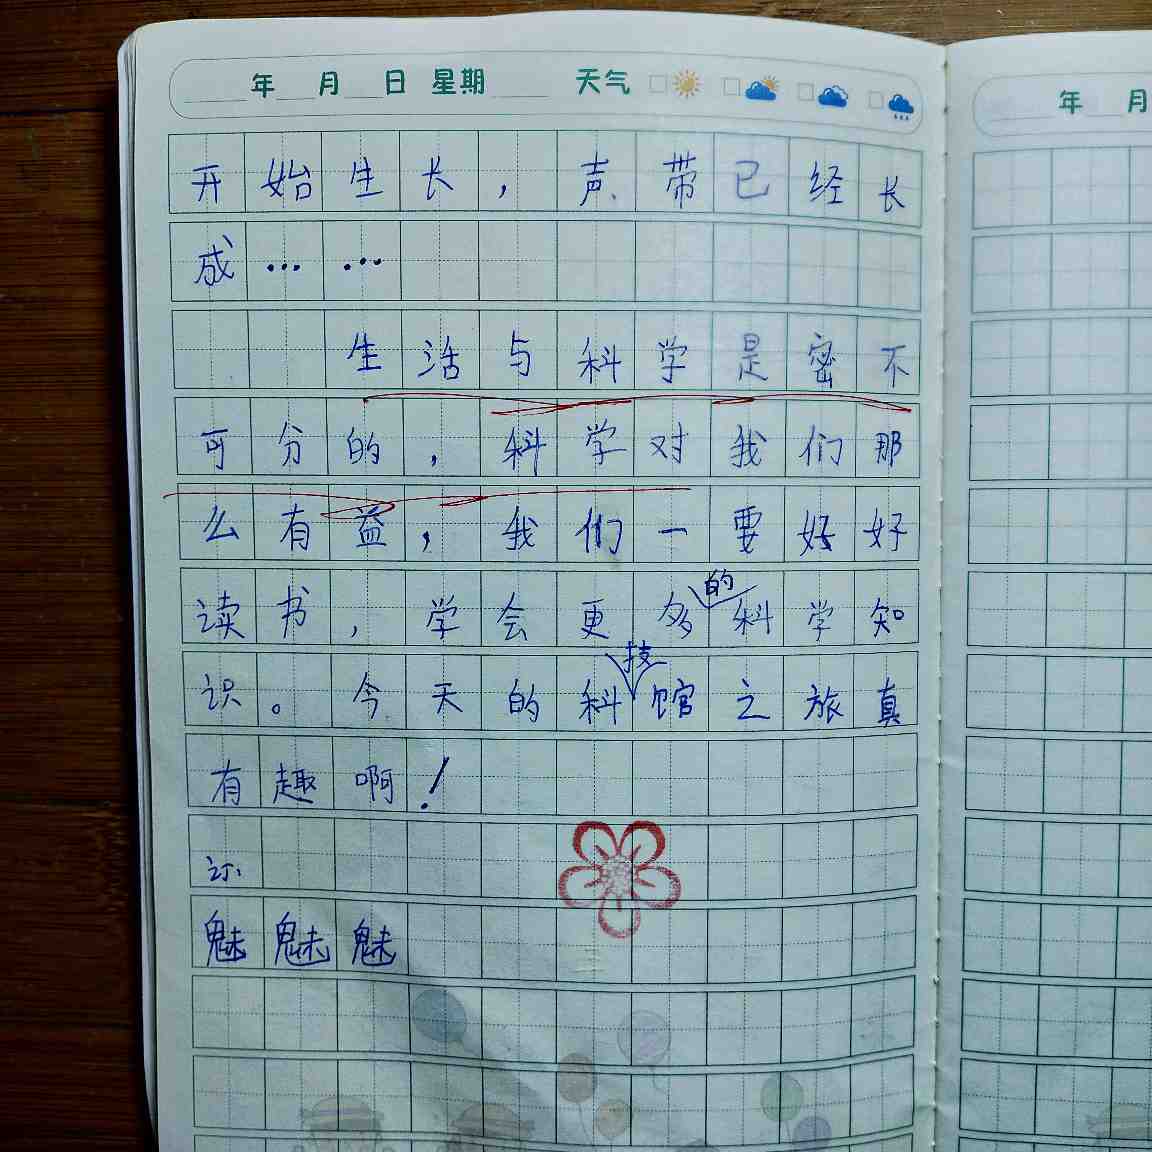 年 月 日 星期 天气
年 月
开始生长，声带已经长
成……
生活与科学是密不
可分的，科学对我们那
么有益，我们一要好好
读书，学会更多的科学知
识。今天的科技馆之旅真
有趣啊！
订
魅魅魅